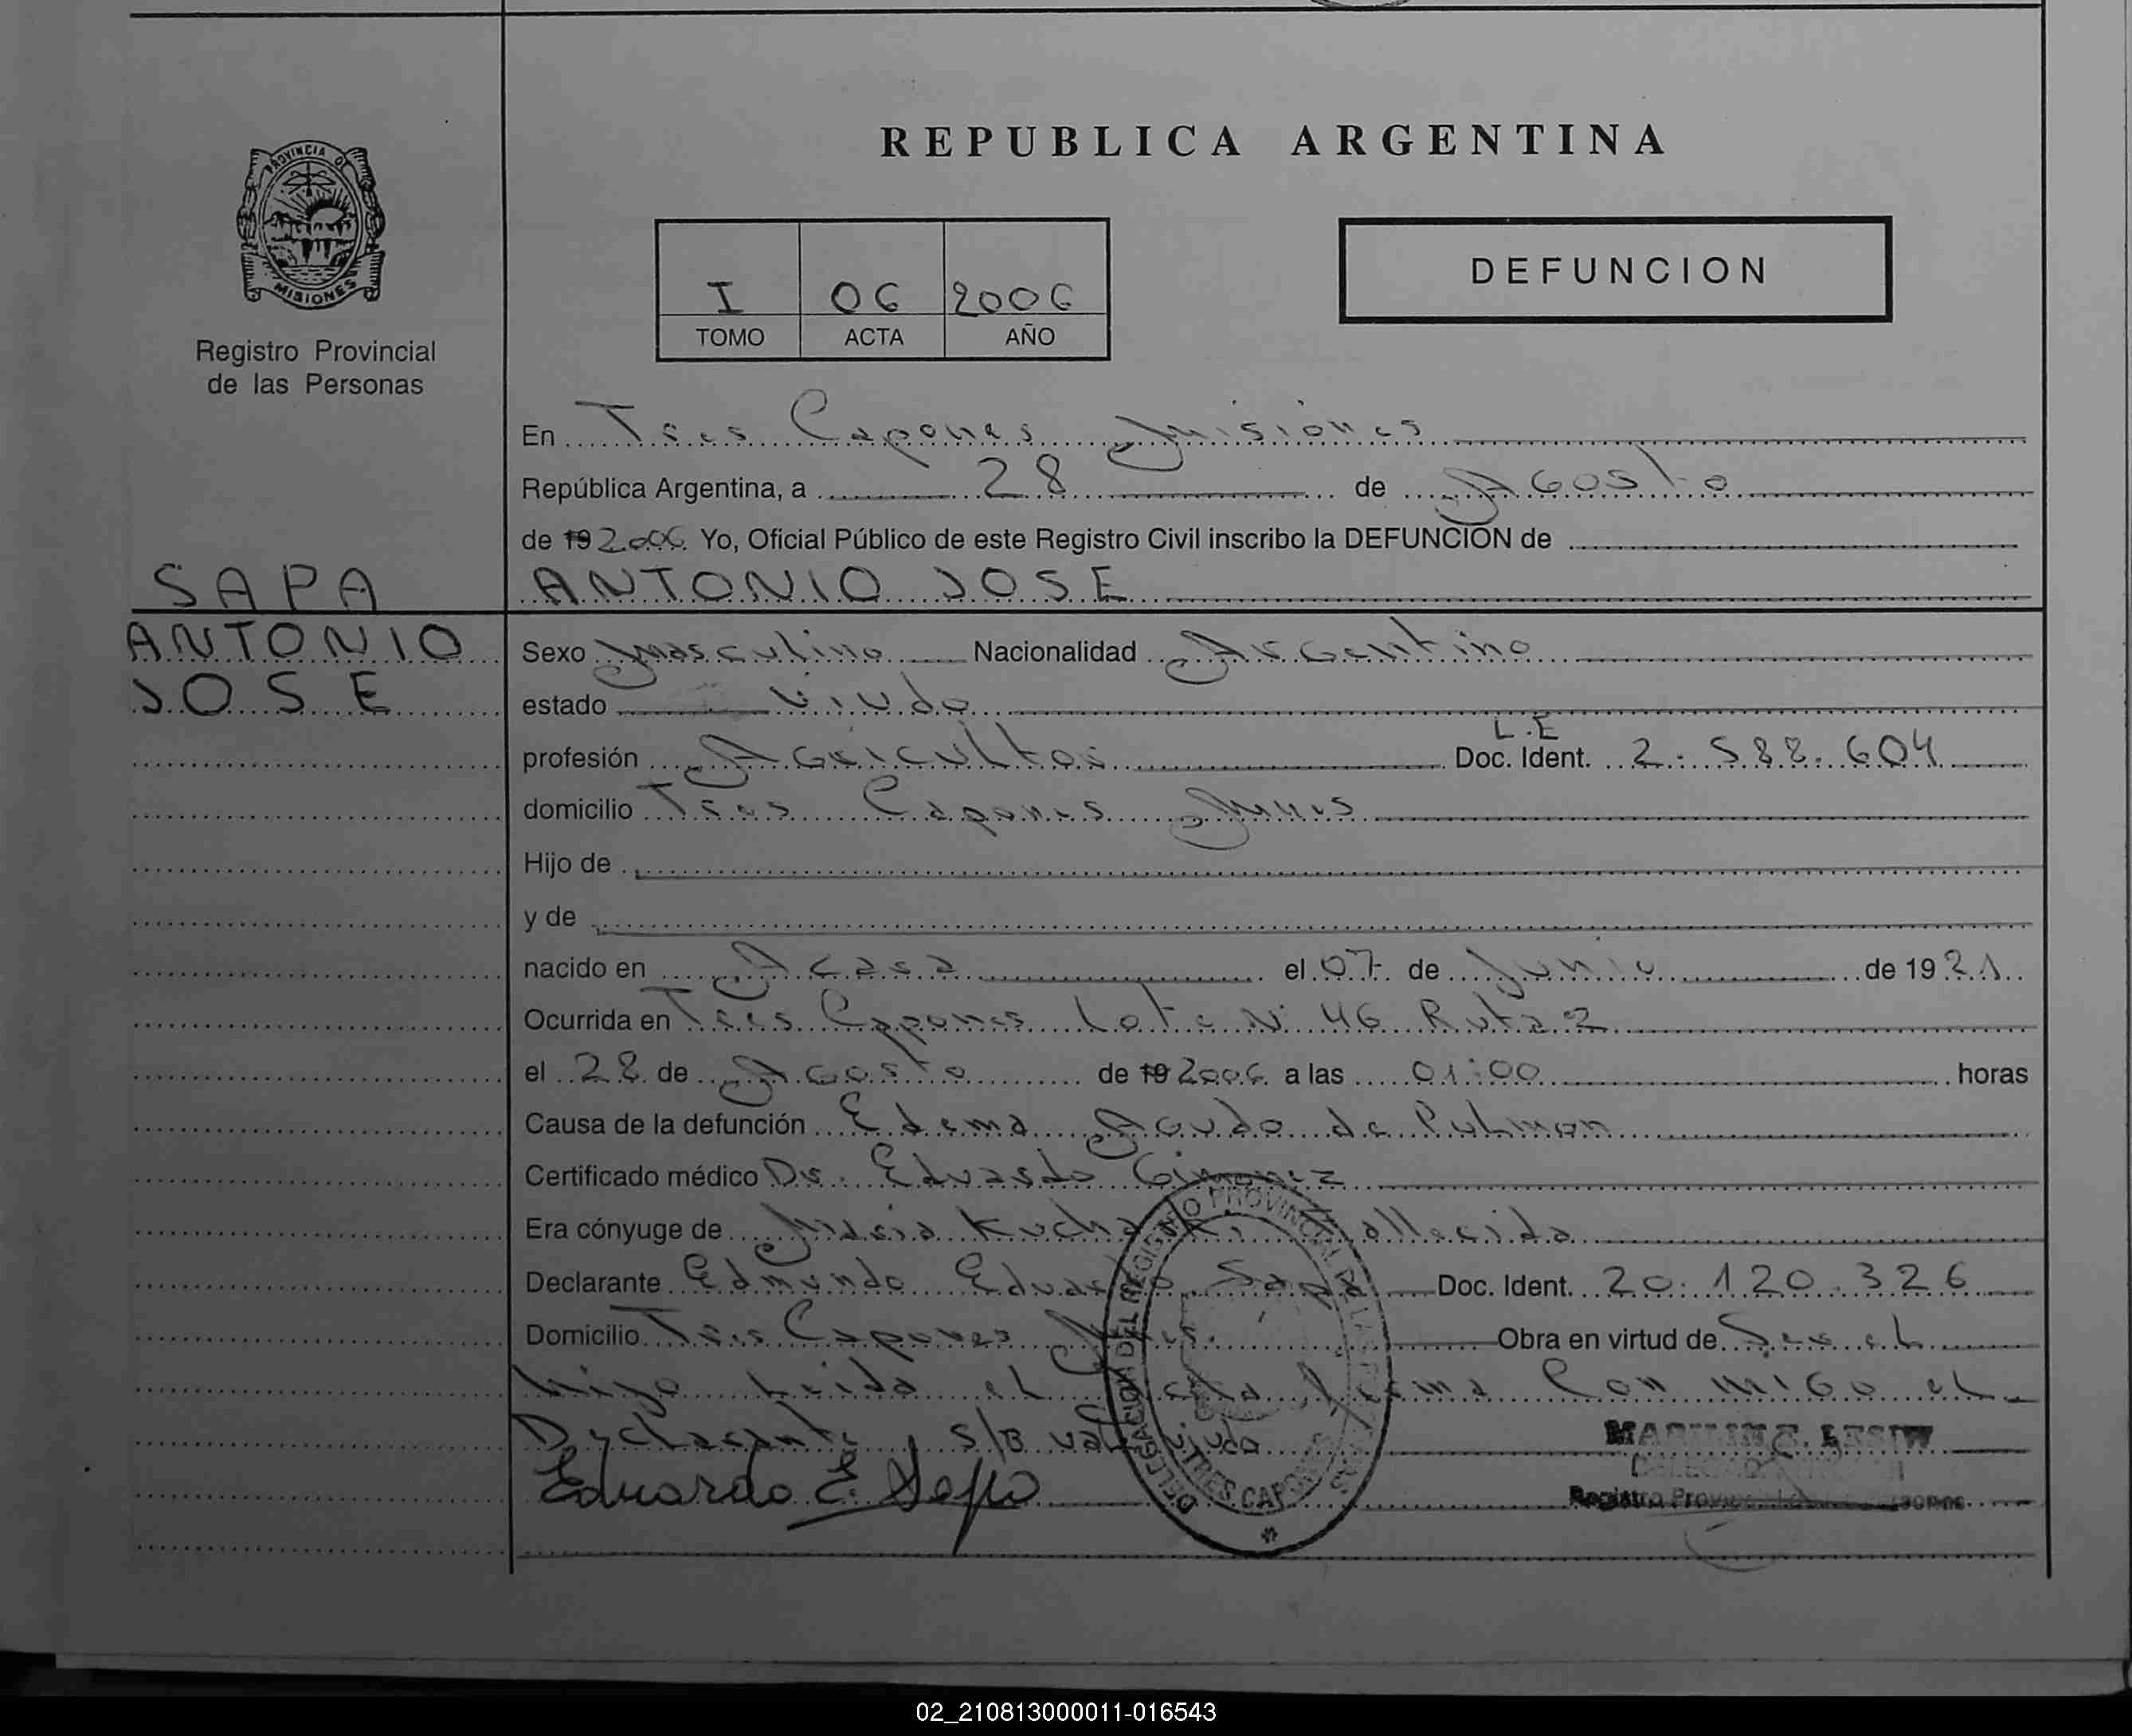 PROVINCIA DE
MISIONES
Registro Provincial
de las Personas
REPUBLICA ARGENTINA
I 06 2006
TOMO ACTA AÑO
DEFUNCION
En Tres Capones Misiones
República Argentina, a 28 de Agosto
de 19 2006 Yo, Oficial Público de este Registro Civil inscribo la DEFUNCION de
SAPA ANTONIO JOSE
ANTONIO
JOSE
Sexo Masculino Nacionalidad Argentino
estado Viudo
L.E
profesión Agricultor Doc. Ident. 2.588.604
domicilio Tres Capones Mnes
Hijo de
y de
nacido en Azara el 07 de Junio de 1921
Ocurrida en Tres Capones Lote Nº 46 Ruta 2
el 28 de Agosto de 19 2006 a las 01:00 horas
Causa de la defunción Edema Agudo de Pulmon
Certificado médico Dr. Eduardo Gimenez
Era cónyuge de Maria Fallecida
Declarante Edmundo Eduardo Sapa Doc. Ident. 20.120.326
Domicilio Tres Capones Obra en virtud de Ser el
hijo Leida el Acta firma Con migo el
Declarante S/B
Eduardo E. Sapa
LESIW
Registro
DELEGACION DEL REGISTRO PROVINCIAL DE LAS PERSONAS
TRES CAPONES
02_210813000011-016543